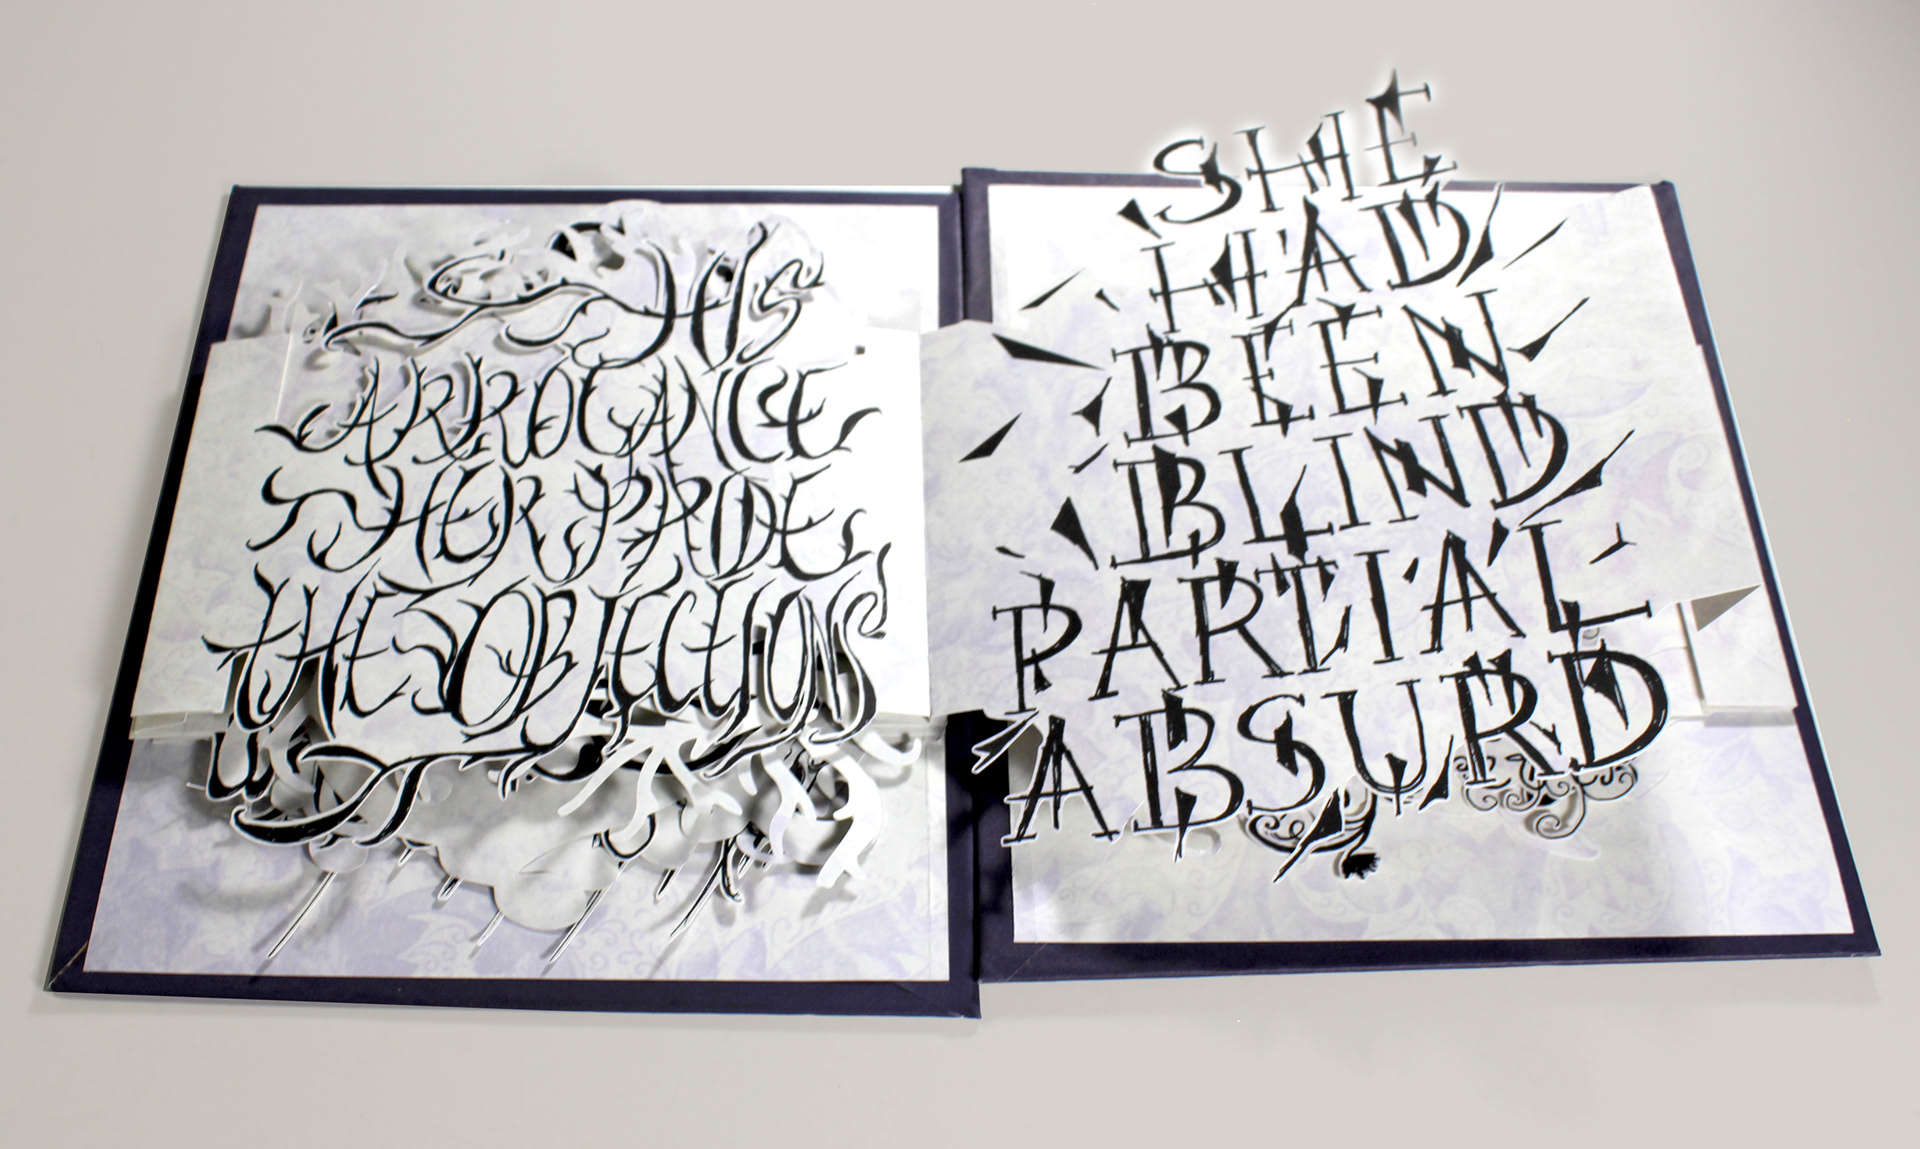 HIS
ARROGANCE
HER PRIDE
THE OBJECTIONS
SHE
HAD
BEEN
BLIND
PARTIAL
ABSURD